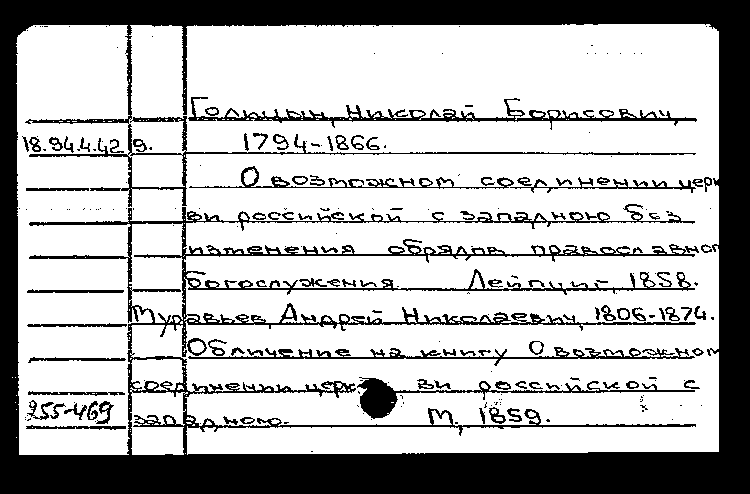 Голицын, Николай Борисович,
18.94.4.42 9. 1794-1866.
О возможном соединении церк
ви российской с западною без
изменения обрядов православног
богослужения Лейпциг, 1858.
Муравьев, Андрей Николаевич, 1806-1874.
Обличение на книгу О возможном
соединении церк ви российской с
255-469 западною. М, 1859.